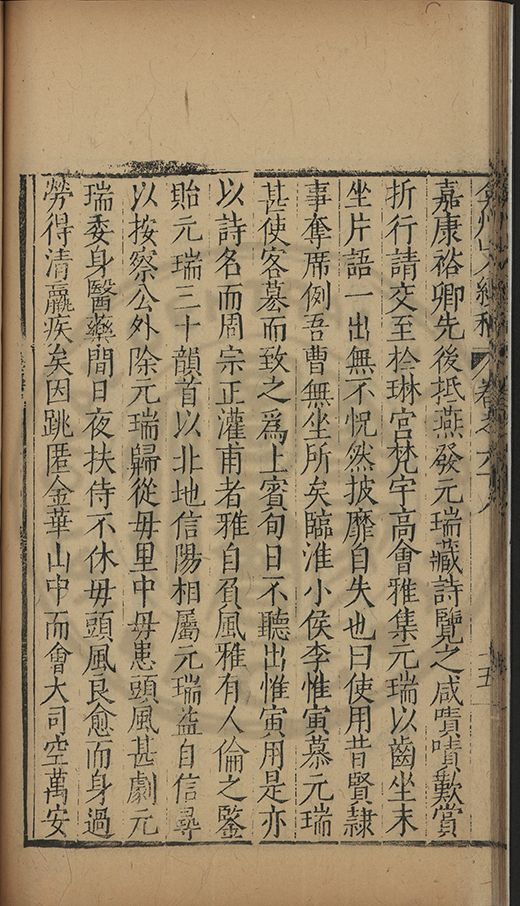 弇州山人續稿 卷之六十八 十五
嘉康裕卿先後抵燕發元瑞藏詩覽之咸嘖嘖歎賞
折行請交至于琳宮梵宇高會雅集元瑞以齒坐末
坐片語一出無不怳然披靡自失也曰使用昔賢隷
事奪席例吾曹無坐所矣臨淮小侯李惟寅慕元瑞
甚使客墓而致之爲上賓旬日不聽出惟寅用是亦
以詩名而周宗正灌甫者雅自負風雅有人倫之鑒
貽元瑞三十韻首以北地信陽相屬元瑞益自信尋
以按察公外除元瑞歸從毋里中毋患頭風甚劇元
瑞委身醫藥間日夜扶侍不休毋頭風良愈而身過
勞得清羸疾矣因跳匿金華山中而會大司空萬安